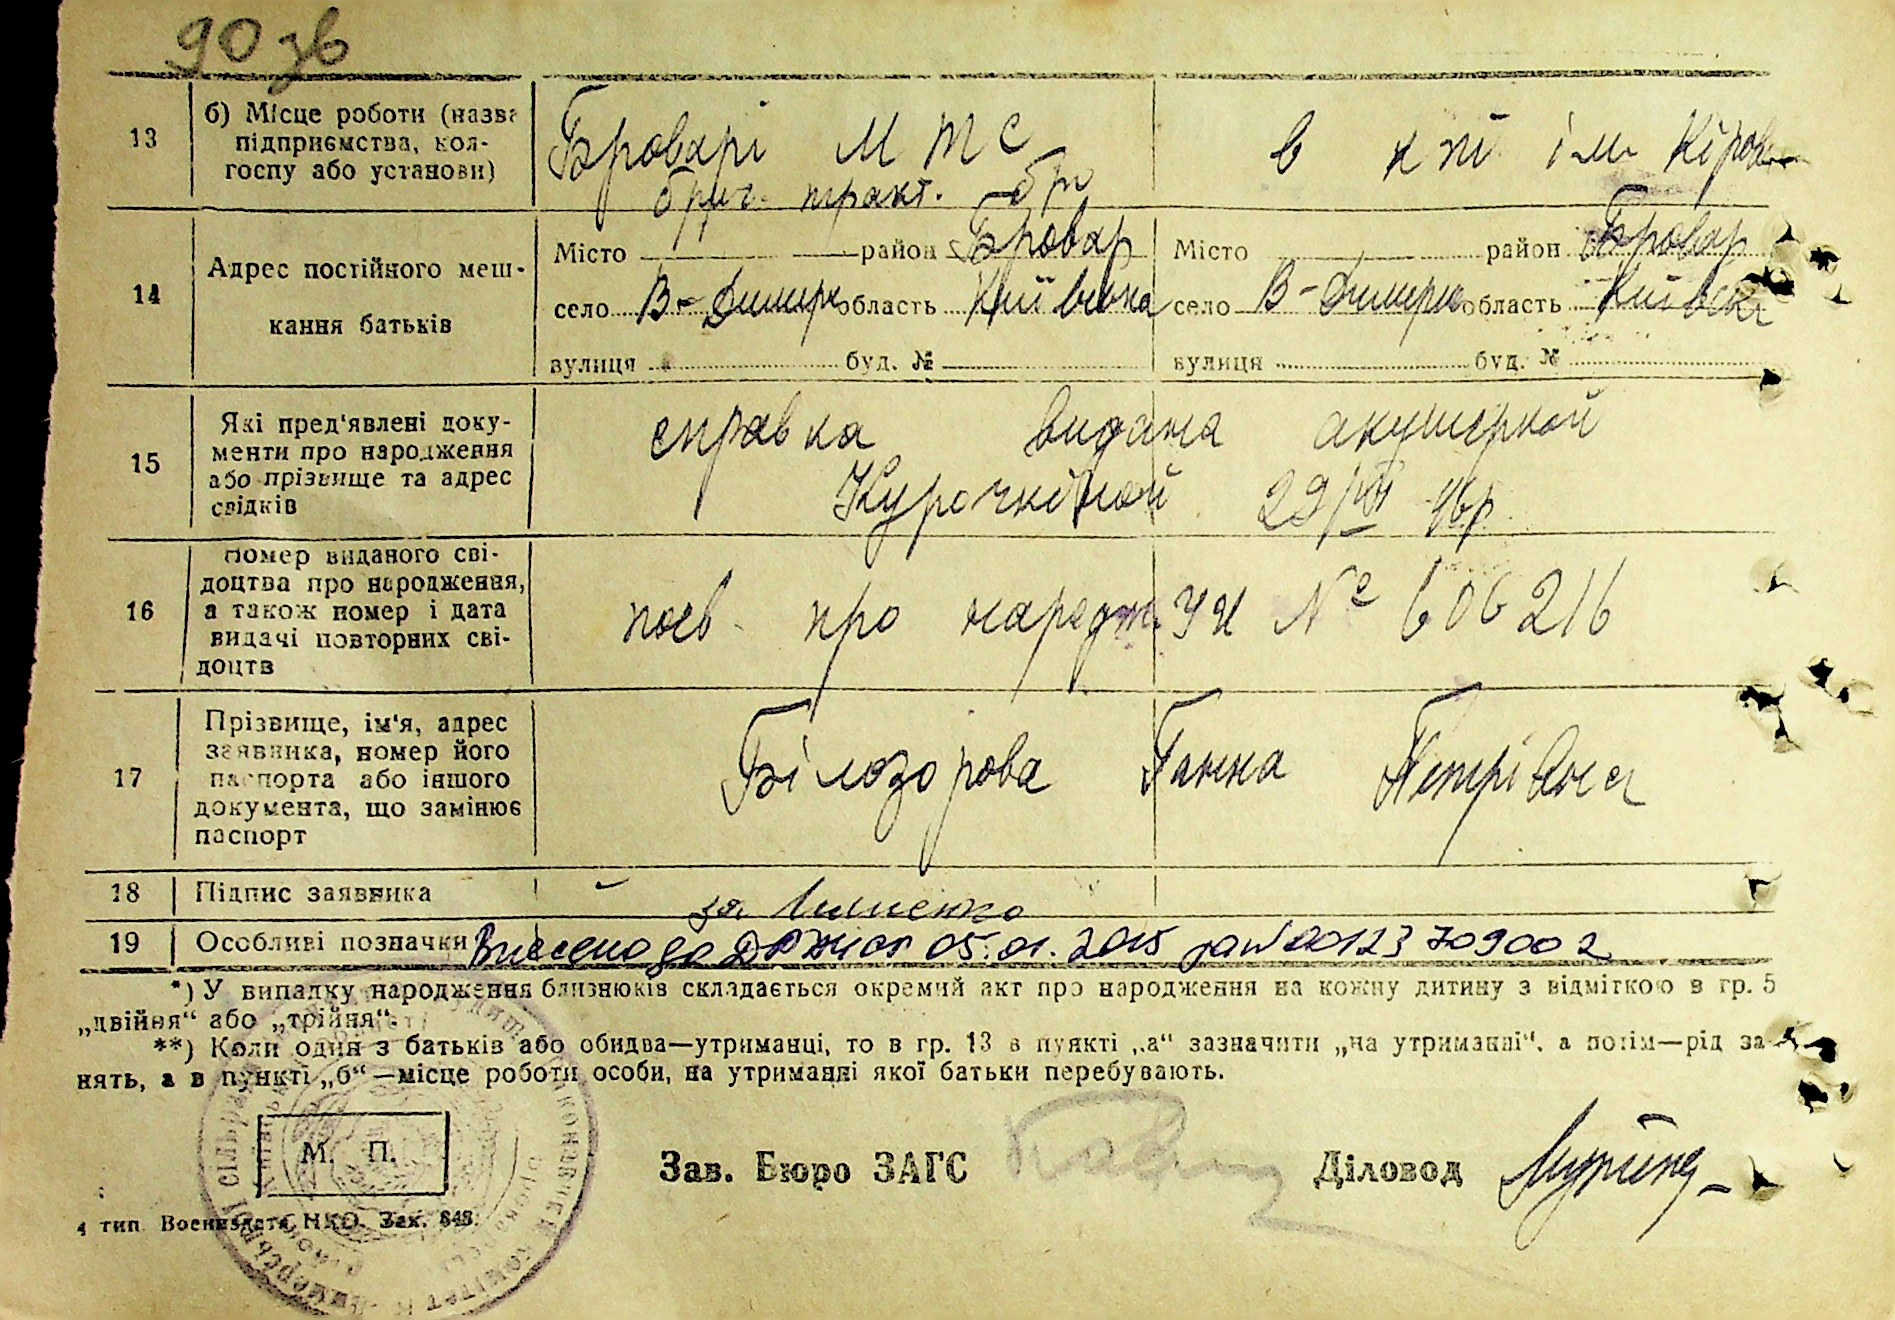 90 зв
13
б) Місце роботи (назва підприємства, кол-
госпу або установи)
Броварі М Т С
бриг. тракт. бр
в к-пі ім Кірова
14
Адрес постійного меш-
кання батьків
Місто район Бровар
село В-Димерк область Київська
вулиця буд. №
Місто район Бровар
село В-Димерка область Київська
вулиця буд. №
15
Які пред'явлені доку-
менти про народження
або прізвище та адрес
свідків
справка видана акушеркой
Курочкіной 29/VII 46р
16
Номер виданого сві-
доцтва про народження,
а також номер і дата
видачі повторних сві-
доцтв
посв. про народж. УИ № 606216
17
Прізвище, ім'я, адрес
заявника, номер його
паспорта або іншого
документа, що замінює
паспорт
Білозорова Ганна Петрівна
18
Підпис заявника
за
19
Особливі позначки
Внесено до ДРАЦСГ 05.01.2015 0012370 9002
*) У випадку народження близнюків складається окремий акт про народження на кожну дитину з відміткою в гр. 5
„двійня“ або „трійня“.
**) Коли один з батьків або обидва—утриманці, то в гр. 13 в пункті „а“ зазначити „на утриманні“, а потім—рід за-
нять, а в пункті „б“—місце роботи особи, на утриманні якої батьки перебувають.
М. П.
Зав. Бюро ЗАГС
Діловод
4 тип. Воениздата НКО. Зак. 848.